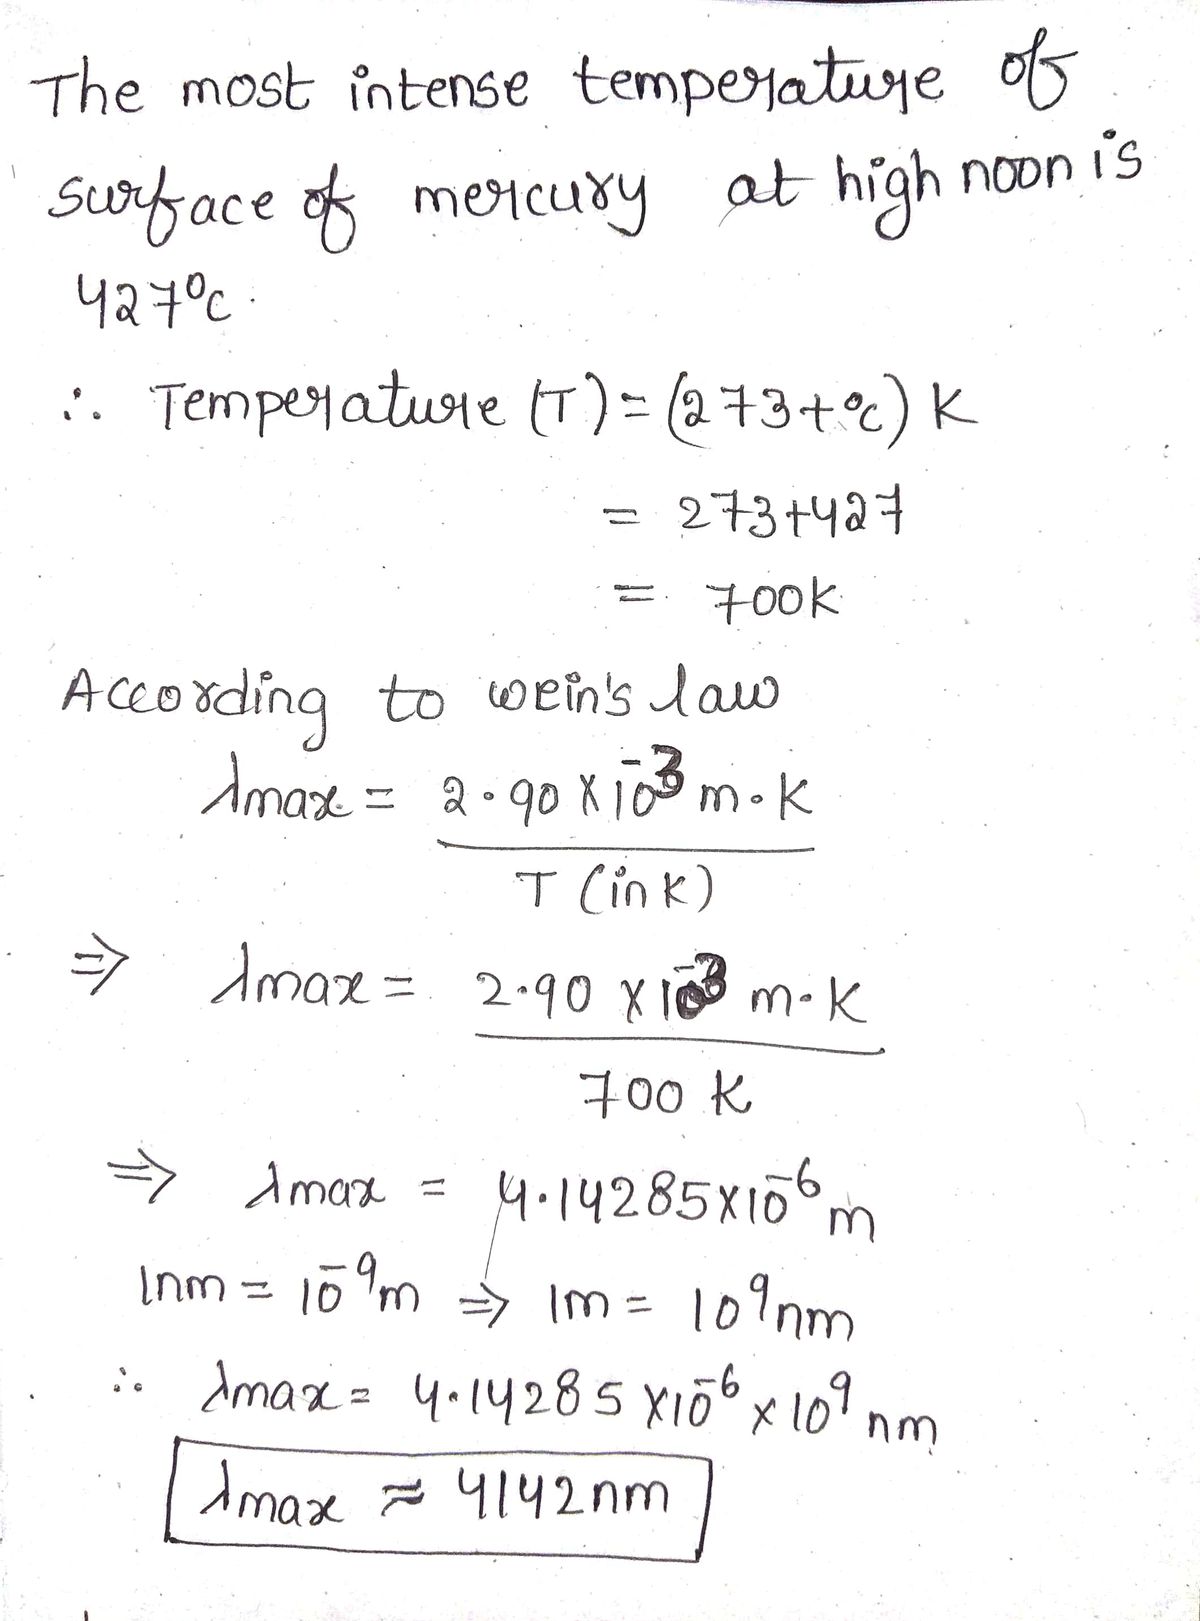 The most intense temperature of
surface of mercury at high noon is
427°C.
∴ Temperature (T) = (273+°C) K
= 273+427
= 700K
According to wein's law
λmax = 2.90 X 10⁻³ m.K
T (in K)
⇒ λmax = 2.90 X 10⁻³ m.K
700 K
⇒ λmax = 4.14285X10⁻⁶ m
1nm = 10⁻⁹m ⇒ 1m = 10⁹nm
∴ λmax = 4.14285 X10⁻⁶ x 10⁹ nm
λmax ≈ 4142nm